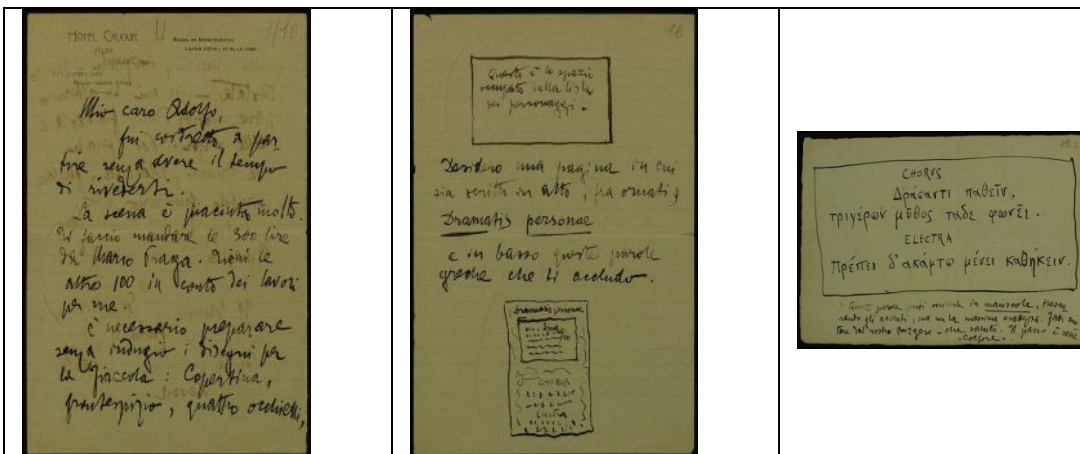 HOTEL CAVOUR
Mio caro Adolfo,
fui costretto a par
tire senza avere il tempo
di rivederti.
La scena è piaciuta molto.
Ti faccio mandare le 300 lire
da Marco Praga. Ricevi le
altre 100 in conto dei lavori
per me.
È necessario preparare
senza indugio i disegni per
la Fiaccola: Copertina,
frontespizio, quattro occhietti,
18
Questo è lo spazio
occupato dalla lista
dei personaggi.
Desidero una pagina in cui
sia scritto in alto, fra ornati,
Dramatis personae
e in basso queste parole
greche che ti accludo.
Dramatis personae
CHORUS
Electra
CHORVS
Δράσαντι παθεῖν,
τριγέρων μῦθος τάδε φωνεῖ.
ELECTRA
Πρέπει δ'ακάμπτῳ μένει καθήκειν.
Queste parole puoi scriverle in maiuscole,